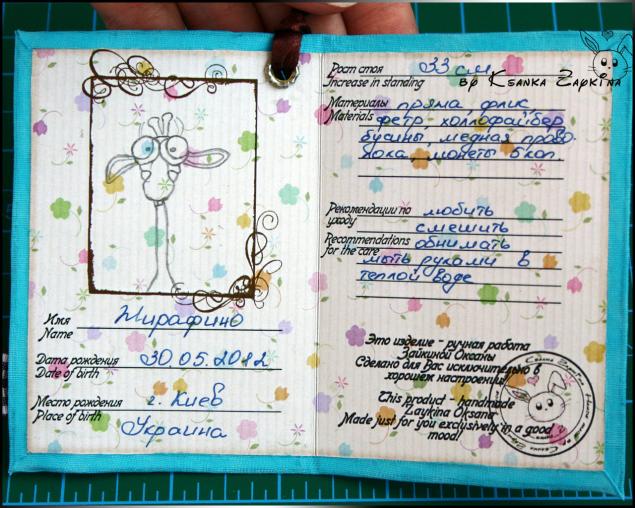 Имя
Name
Жирафино
Дата рождения
Date of birth
30.05.2012
Место рождения
Place of birth
г. Киев
Украина
Рост стоя
Increase in standing
33 см
by Ksanka Zaykina
Материалы
Materials
пряжа флис,
фетр холлофайбер
бусины медная прово-
лока, монеты 5 коп.
Рекомендации по
уходу
Recommendations
for the care
любить
смешить
обнимать
мыть руками в
теплой воде
Это изделие - ручная работа
Зайкиной Оксаны
Сделано для Вас исключительно в
хорошем настроении!
This product - handmade
Zaykina Oksana
Made just for you exclusively in a good
mood!